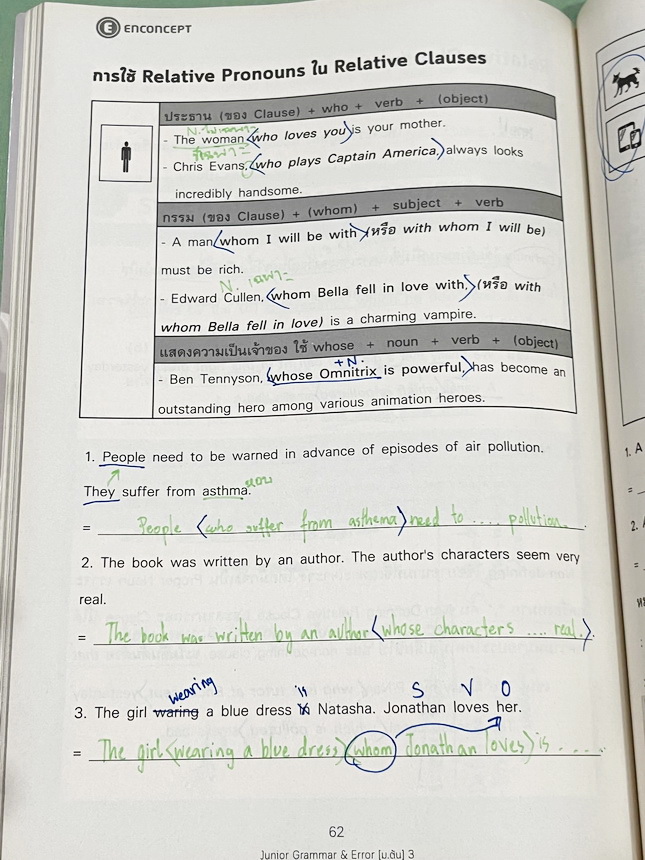 E ENCONCEPT
การใช้ Relative Pronouns ใน Relative Clauses
ประธาน (ของ Clause) + who + verb + (object)
N. ไม่เฉพาะ
- The woman <who loves you> is your mother.
ชี้เฉพาะ
- Chris Evans, <who plays Captain America,> always looks
incredibly handsome.
กรรม (ของ Clause) + (whom) + subject + verb
- A man <whom I will be with> (หรือ with whom I will be)
must be rich.
N. เฉพาะ
- Edward Cullen, <whom Bella fell in love with,> (หรือ with
whom Bella fell in love) is a charming vampire.
แสดงความเป็นเจ้าของ ใช้ whose + noun + verb + (object)
+N.
- Ben Tennyson, <whose Omnitrix is powerful,> has become an
outstanding hero among various animation heroes.
1. People need to be warned in advance of episodes of air pollution.
They suffer from asthma. หอบ
= People <who suffer from asthema> need to .... pollution.
2. The book was written by an author. The author's characters seem very
real.
= The book was written by an author <whose characters .... real.>
wearing is S V O
3. The girl waring a blue dress Natasha. Jonathan loves her.
= The girl <wearing a blue dress> (whom Jonathan loves) is .....
62
Junior Grammar & Error [ม.ต้น] 3
1. A
=
2.
=